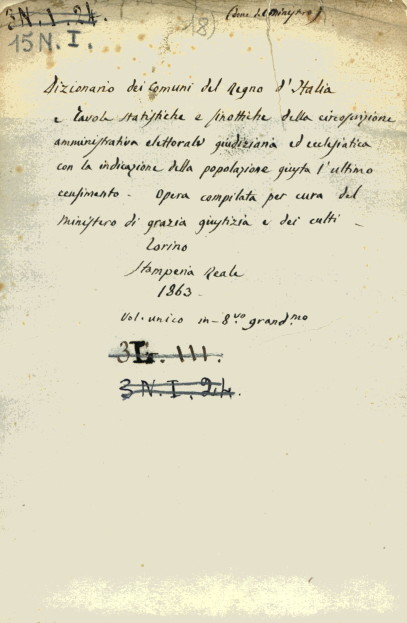 3 N. I. 24.
15 N. I.
18)
(Dono del Ministro)
Dizionario dei Comuni del Regno d'Italia
e Tavole statistiche e sinottiche della circoscrizione
amministrativa elettorale giudiziaria ed ecclesiastica
con la indicazione della popolazione giusta l'ultimo
censimento - Opera compilata per cura del
Ministero di grazia giustizia e dei culti -
Torino
Stamperia Reale
1863 -
Vol. unico in-8.vo grand.mo
3 L. III.
3 N. I. 24.